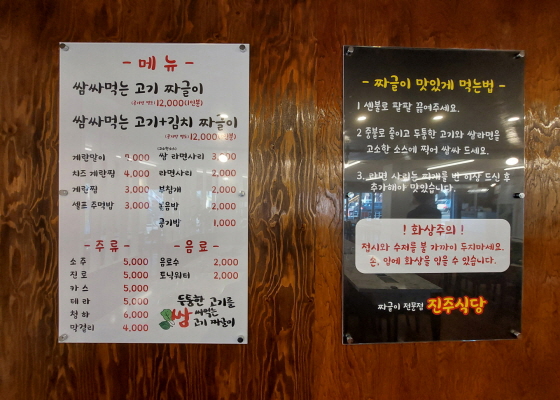 - 메뉴 -
쌈싸먹는 고기 짜글이
12,000(1인분)
쌈싸먹는 고기+김치 짜글이
12,000(1인분)
계란말이
치즈 계란찜 4,000
계란찜 3,000
셀프 주먹밥 3,000
쌀 라면사리
라면사리 2,000
부침개 2,000
볶음밥 2,000
공기밥 1,000
- 주류 -
소주 5,000
진로 5,000
카스 5,000
테라 5,000
청하 6,000
막걸리 4,000
- 음료 -
음료수 2,000
토닉워터 2,000
두툼한 고기를
쌈 싸먹는
고기 짜글이
- 짜글이 맛있게 먹는법 -
1 센불로 팔팔 끓여주세요.
2 중불로 줄이고 두툼한 고기와 쌀라면을
고소한 소스에 찍어 쌈싸 드세요.
3. 라면 사리는 찌개를 반 이상 드신 후
추가해야 맛있습니다.
! 화상주의 !
전시와 수저를 불 가까이 두지마세요.
손, 입에 화상을 입을 수 있습니다.
짜글이 전문점 진주식당